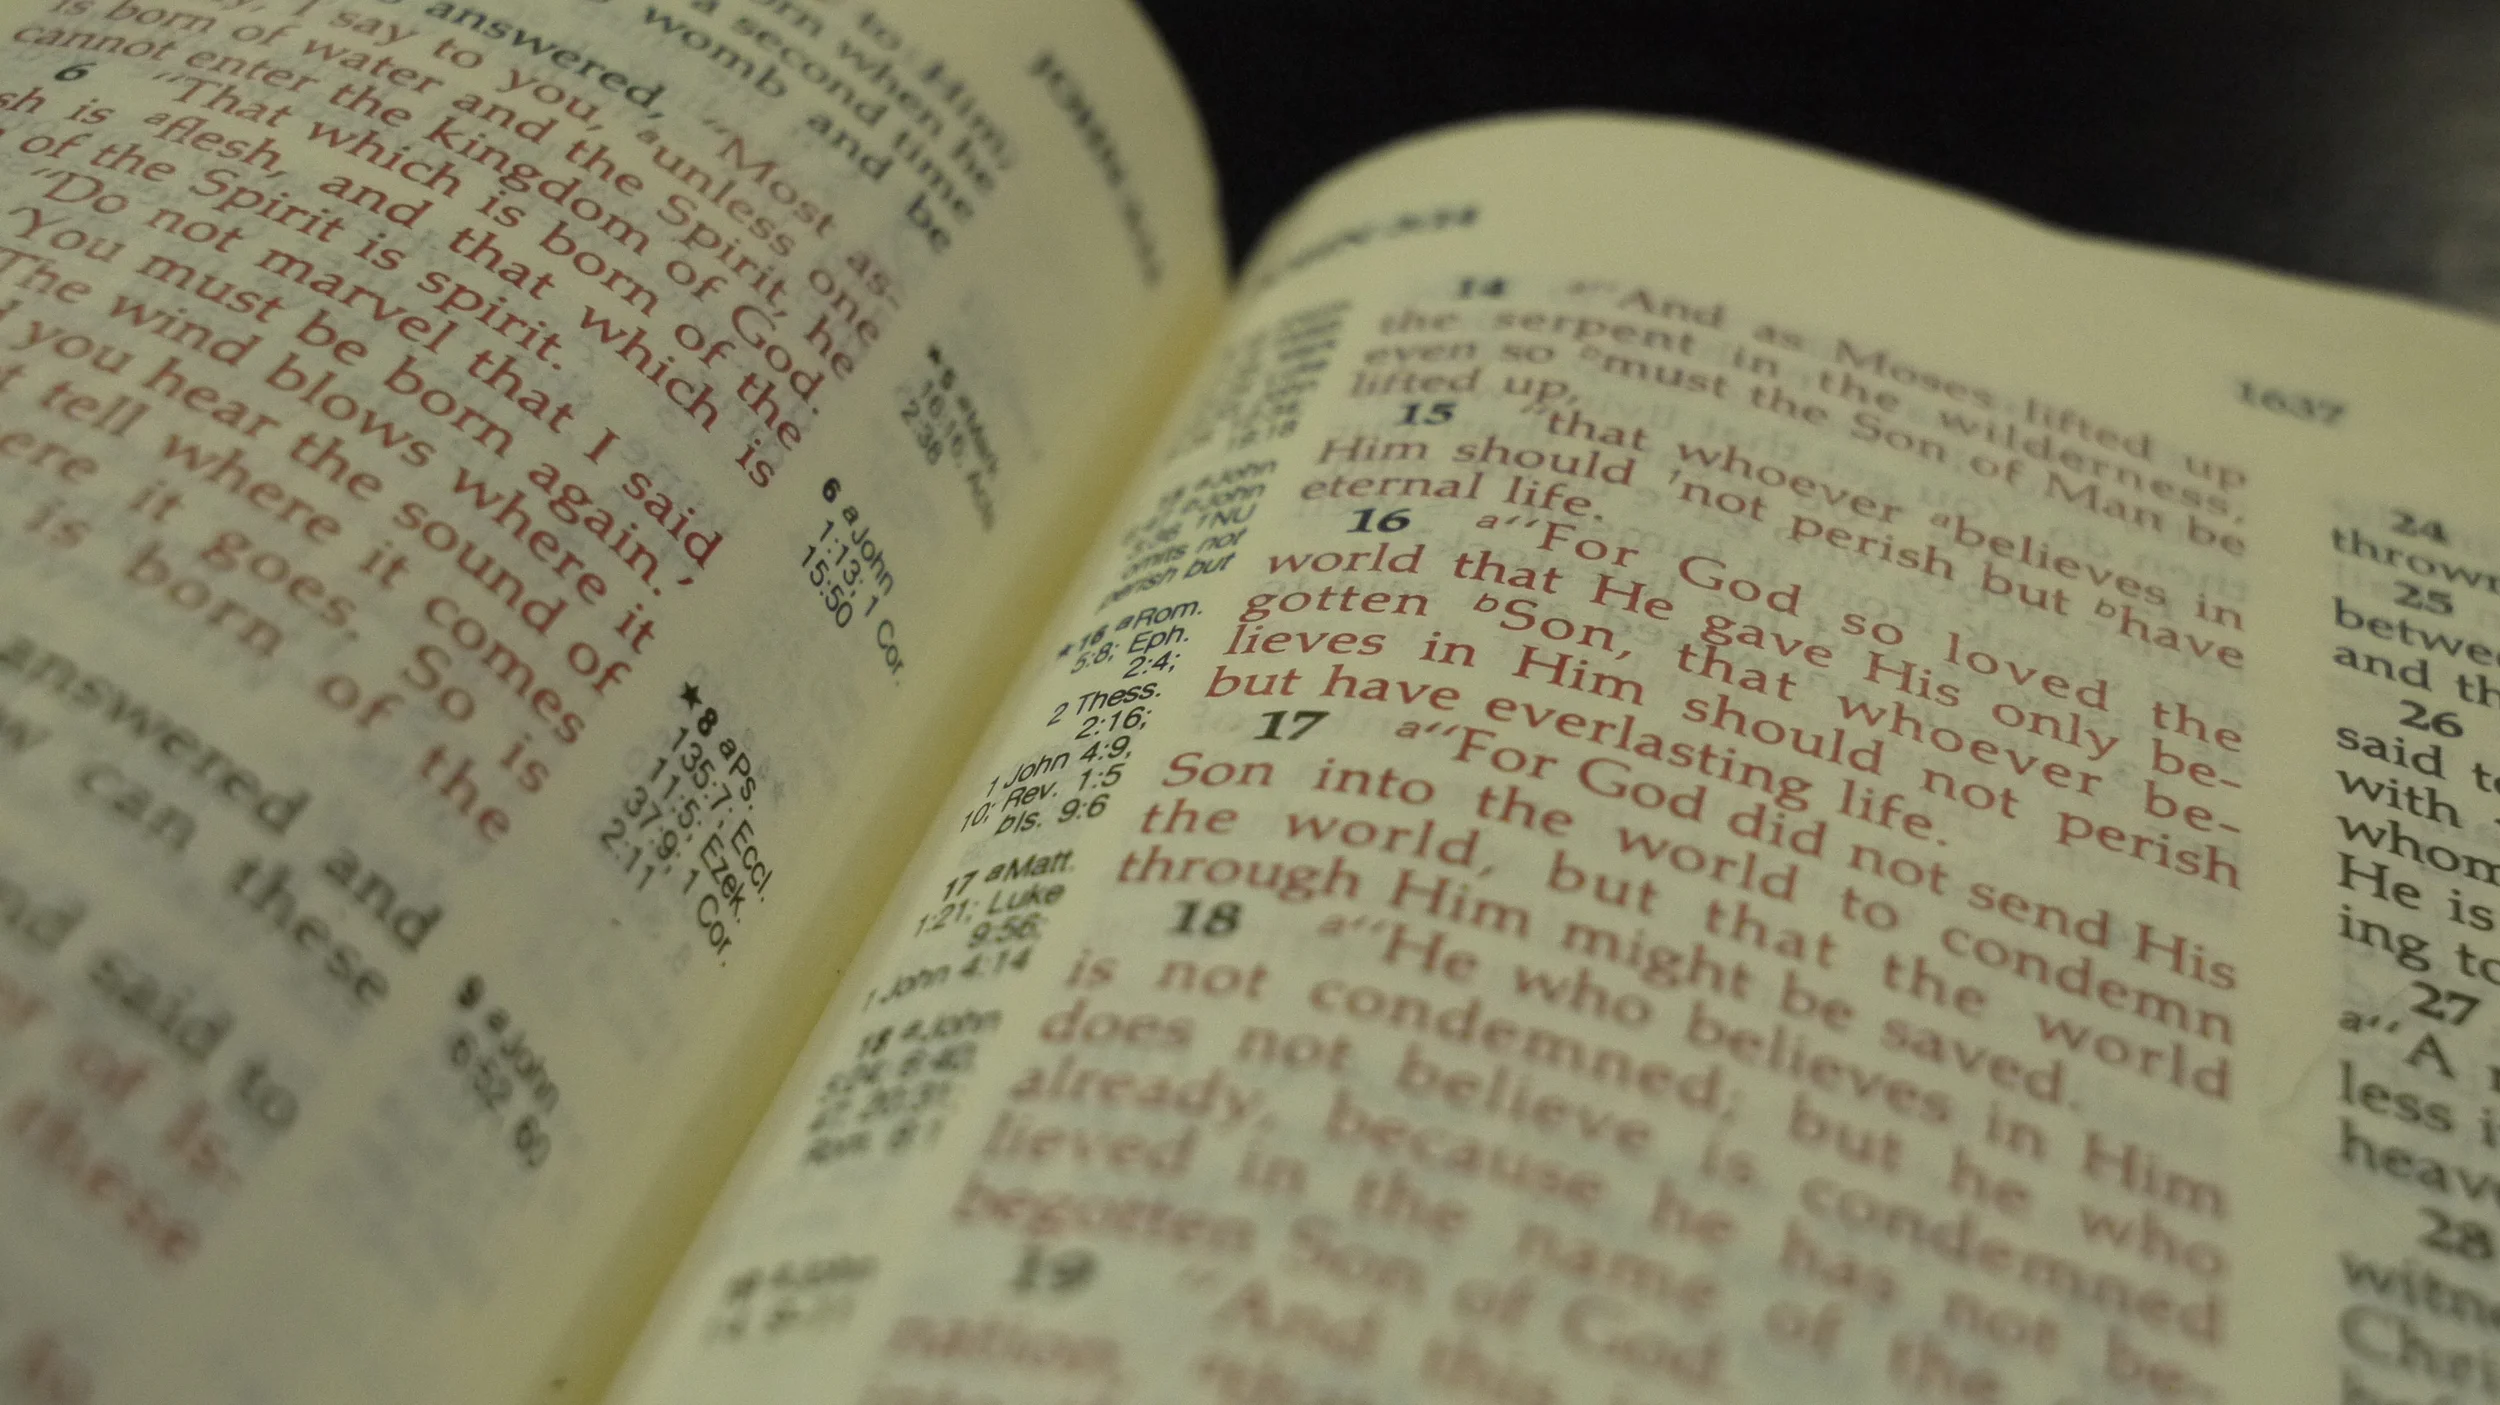 to Him,
orn when he
a second time
womb and be
answered, "Most as-
I say to you, ᵃunless one
is born of water and the Spirit, he
cannot enter the kingdom of God.
6 "That which is born of the
is ᵃflesh, and that which is
of the Spirit is spirit.
"Do not marvel that I said
'You must be born again.'
The wind blows where it
you hear the sound of
tell where it comes
ere it goes. So is
is born of the
answered and
can these
and said to
of Is-
these
★5 aMark
16:16; Acts
2:38
6 aJohn
1:13; 1 Cor.
15:50
★8 aPs.
135:7; Eccl.
11:5; Ezek.
37:9; 1 Cor.
2:11
9 aJohn
6:52, 60
JOHN
1637
NU
omits not
perish but
★16 aRom.
5:8; Eph.
2:4;
2 Thess.
2:16;
1 John 4:9,
10; Rev. 1:5
bIs. 9:6
17 aMatt.
1:21; Luke
9:56;
1 John 4:14
18 aJohn
14 ᵃ"And as Moses lifted up
the serpent in the wilderness,
even so ᵇmust the Son of Man be
lifted up,
15 "that whoever ᵃbelieves in
Him should ¹not perish but ᵇhave
eternal life.
16 ᵃ"For God so loved the
world that He gave His only be-
gotten ᵇSon, that whoever be-
lieves in Him should not perish
but have everlasting life.
17 ᵃ"For God did not send His
Son into the world to condemn
the world, but that the world
through Him might be saved.
18 ᵃ"He who believes in Him
is not condemned; but he who
does not believe is condemned
already, because he has not be-
lieved in the name of the
begotten Son of God.
19 "And this
nation,
24
thrown
25
betwee
and th
26
said to
with
whom
He is
ing to
27
ᵃ"A
less i
heave
28
witne
Chri